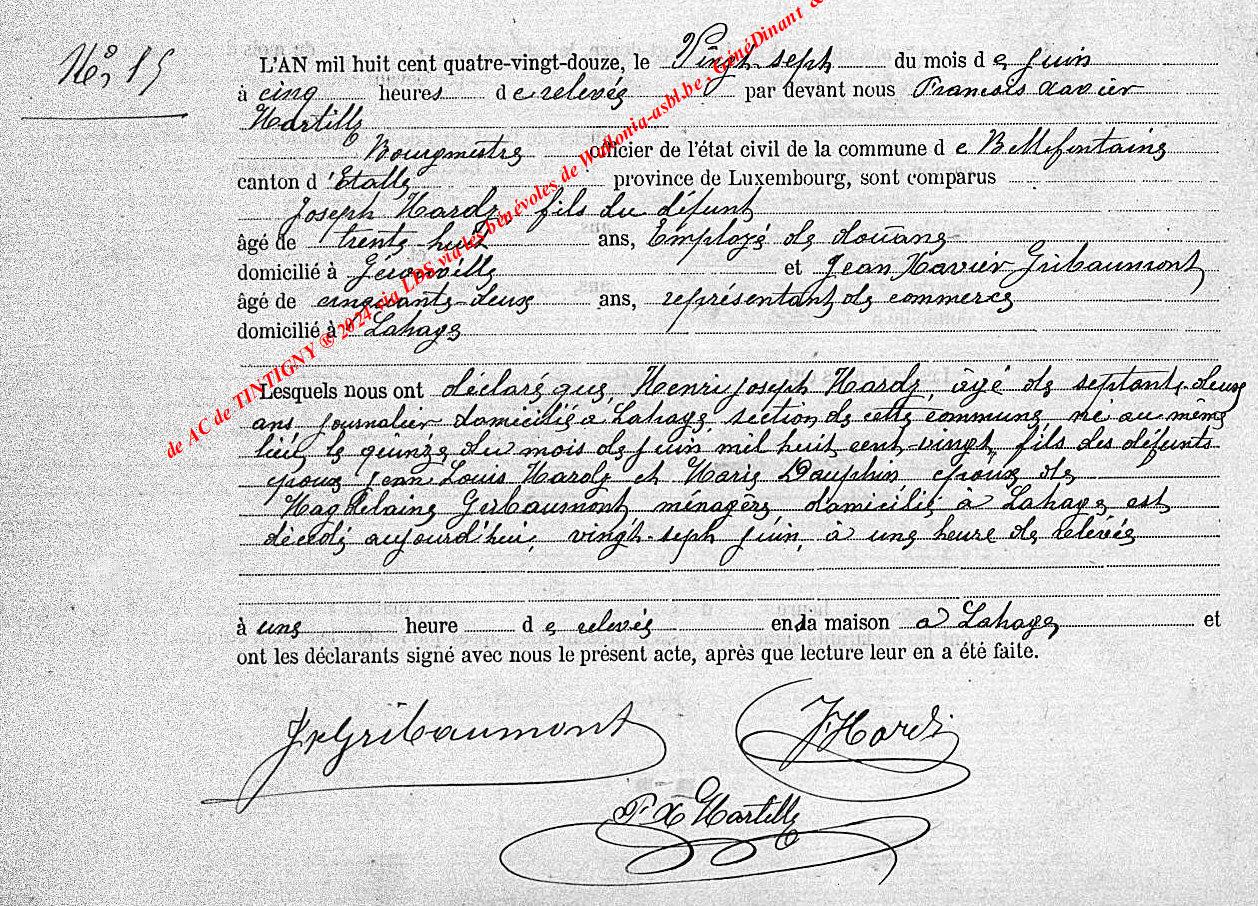 No. 15
L'AN mil huit cent quatre-vingt-douze, le Vingt-sept du mois de Juin
à cinq heures de relevée par devant nous Francois Xavier
Martilly
Bourgmestre officier de l'état civil de la commune de Bellefontaine
canton d'Etalle province de Luxembourg, sont comparus
Joseph Hardy, fils du défunt
âgé de trente-huit ans, Employé de douane
domicilié à Gérouville et Jean Xavier Gribaumont
âgé de cinquante-deux ans, représentant de commerce
domicilié à Lahage
Lesquels nous ont déclaré que, Henri Joseph Hardy, âgé de septante-deux
ans journalier domicilié à Lahage, section de cette commune, né au même
lieu, le quinze du mois de Juin mil huit cent-vingt, fils des défunts
époux Jean Louis Hardy et Marie Dauphin, époux de
Magdelaine Gribaumont ménagère domicilié à Lahage est
décédé aujourd'hui, vingt-sept Juin, à une heure de relevée
à une heure de relevée en la maison à Lahage, et
ont les déclarants signé avec nous le présent acte, après que lecture leur en a été faite.
JxGribaumont J Hardy
F. X Martilly
de AC de TINTIGNY ® 2024 via LDS via les bénévoles de Wallonia-asbl.be - GénéDinant &